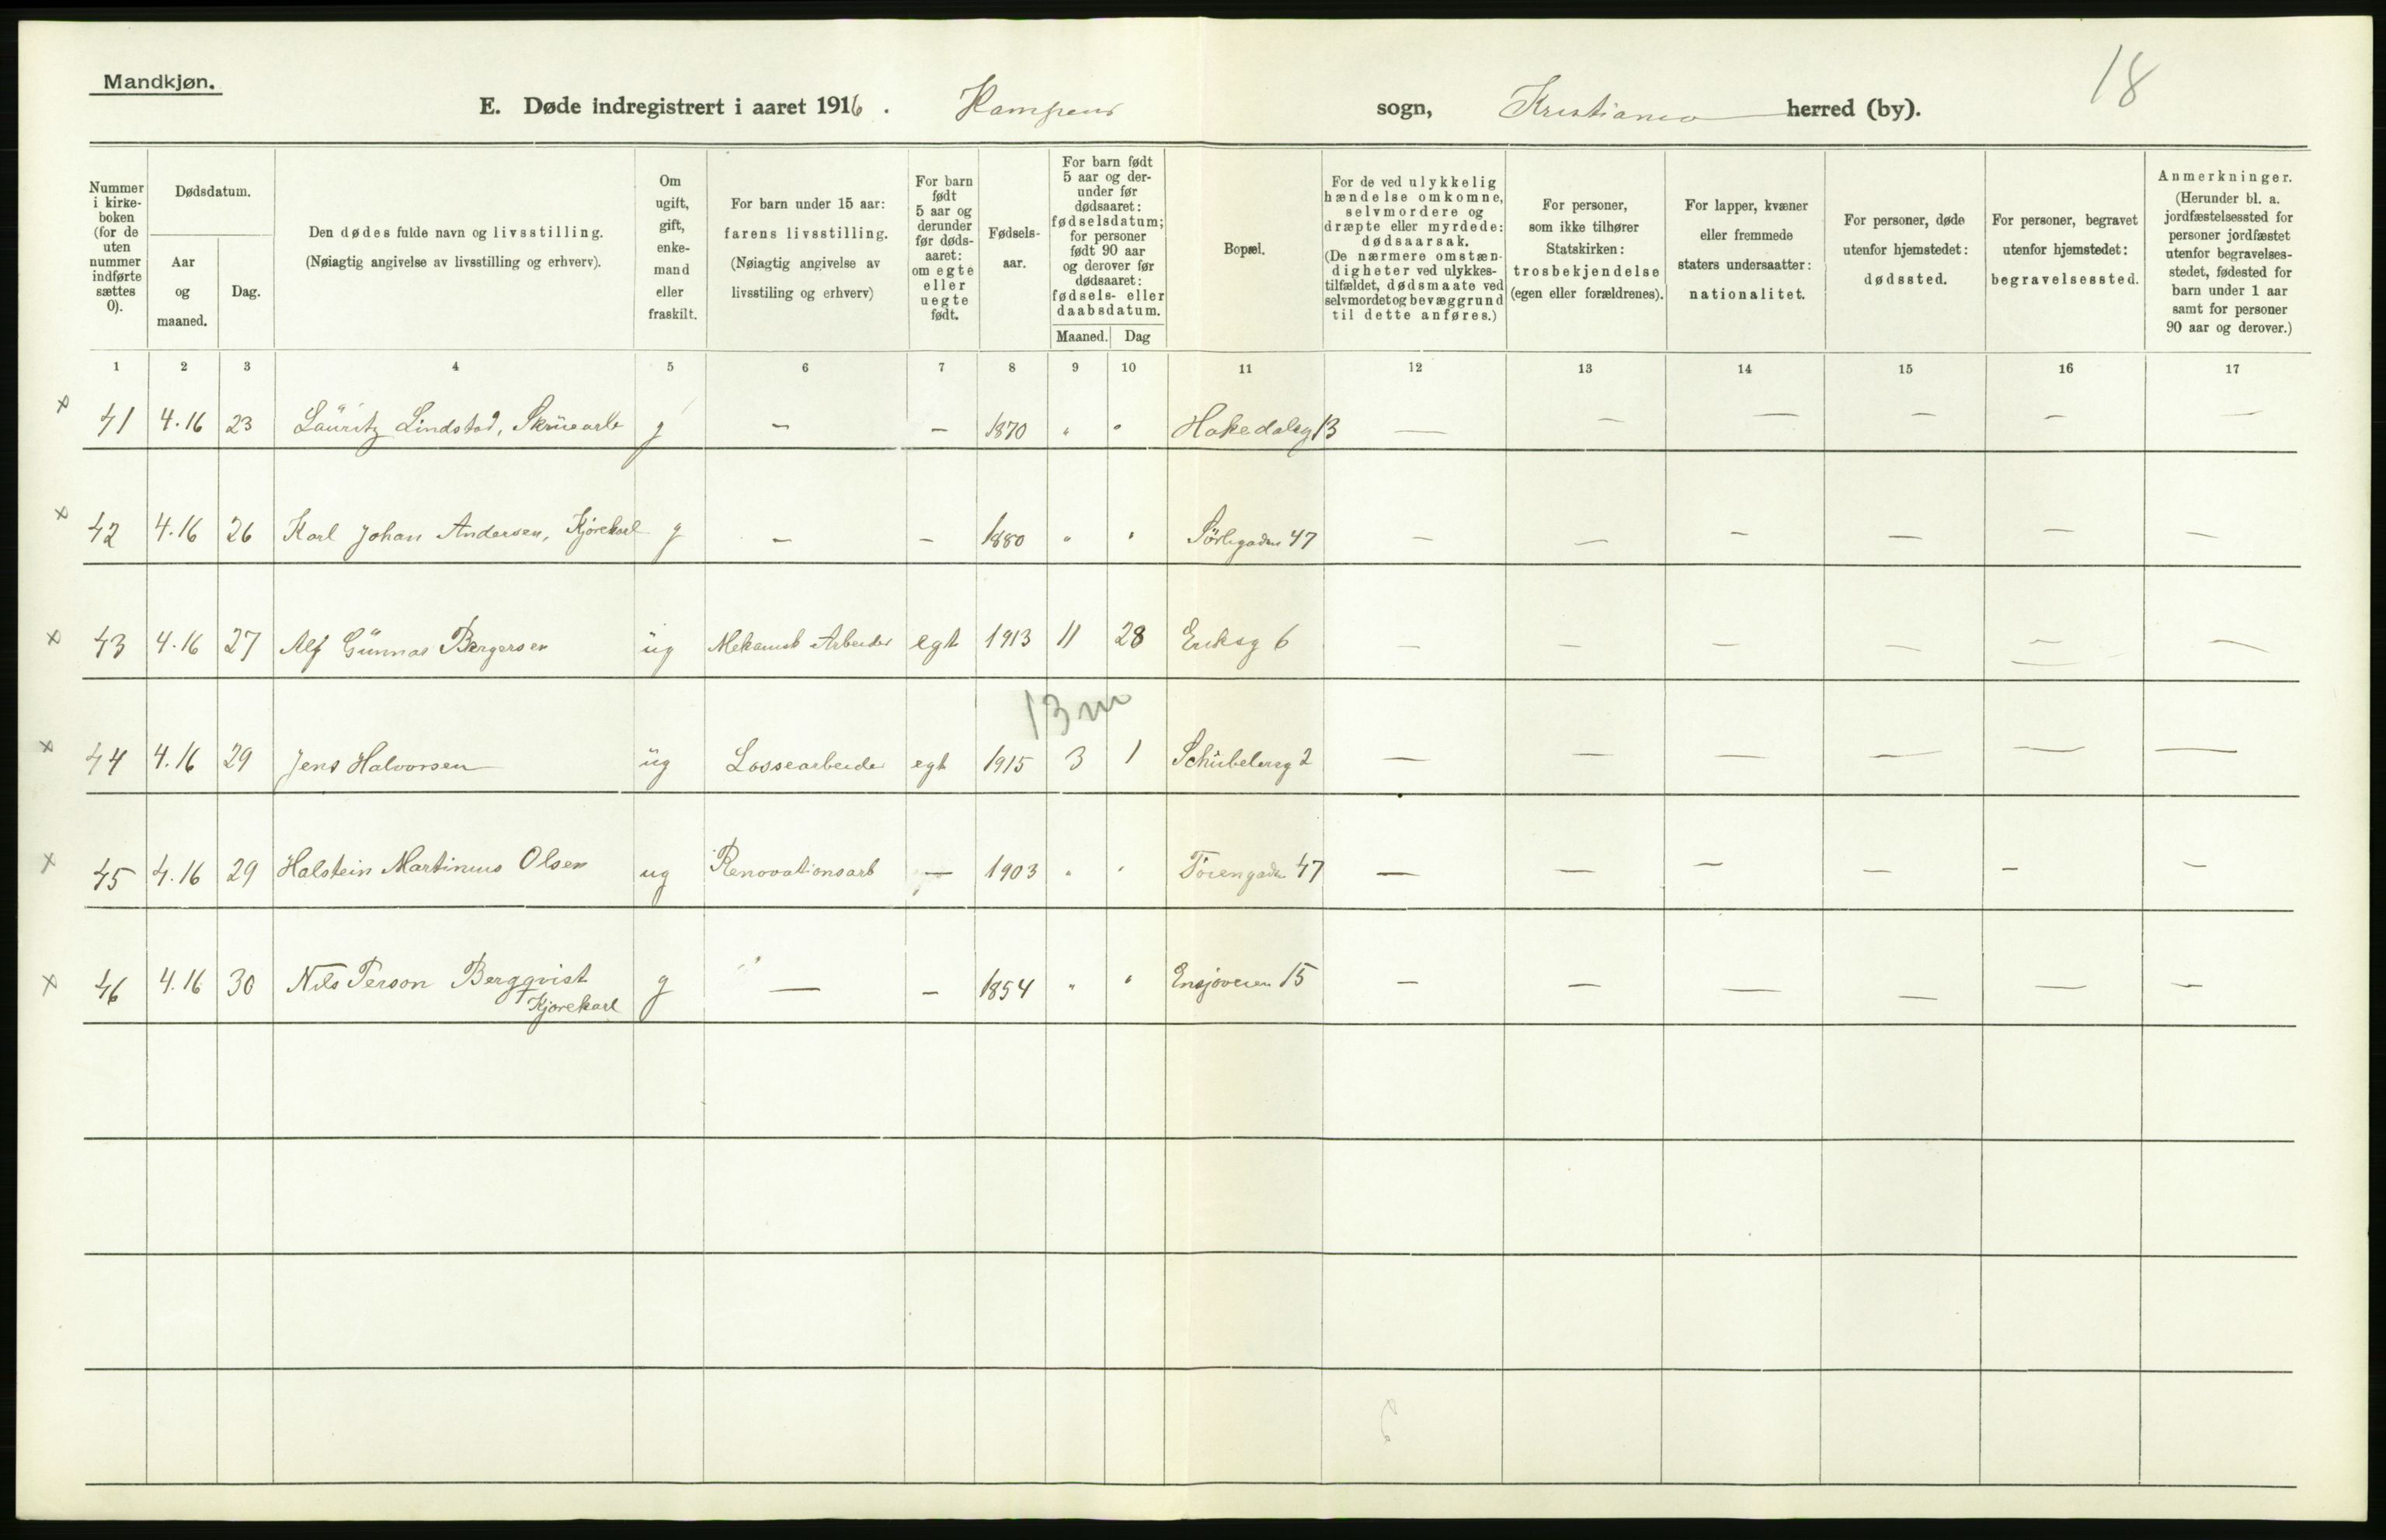 Mandkjøn.
18
E. Døde indregistrert i aaret 1916. Kampens sogn, Kristiania herred (by).
Nummer i kirke-boken (for de uten nummer indførte sættes 0).
Dødsdatum.
Aar og maaned.
Dag.
Den dødes fulde navn og livsstilling.
(Nøiagtig angivelse av livsstilling og erhverv).
Om ugift, gift, enke-mand eller fraskilt.
For barn under 15 aar: farens livsstilling.
(Nøiagtig angivelse av livsstiling og erhverv)
For barn født 5 aar og derunder før døds-aaret: om egte eller uegte født.
Fødsels-aar.
For barn født 5 aar og der-under før dødsaaret: fødselsdatum; for personer født 90 aar og derover før dødsaaret: fødsels- eller daabsdatum.
Maaned. Dag
Bopæl.
For de ved ulykkelig hændelse omkomne, selvmordere og dræpte eller myrdede: dødsaarsak.
(De nærmere omstæn-digheter ved ulykkes-tilfældet, dødsmaate ved selvmordet og bevæggrund til dette anføres.)
For personer, som ikke tilhører Statskirken: trosbekjendelse (egen eller forældrenes).
For lapper, kvæner eller fremmede staters undersaatter: nationalitet.
For personer, døde utenfor hjemstedet: dødssted.
For personer, begravet utenfor hjemstedet: begravelsessted.
Anmerkninger.
(Herunder bl. a. jordfæstelsessted for personer jordfæstet utenfor begravelses-stedet, fødested for barn under 1 aar samt for personer 90 aar og derover.)
1 2 3 4 5 6 7 8 9 10 11 12 13 14 15 16 17
× 41 4.16 23 Lauritz Lindstad, Skruearb g — — 1870 " " Hakedalsg 13 — — — — — —
× 42 4.16 26 Karl Johan Andersen, Kjørekarl g — — 1880 " " Sørligaden 47 — — — — — —
× 43 4.16 27 Alf Gunnar Bergersen ug Mekanisk Arbeider egt 1913 11 28 Eriksg 6 — — — — — —
13 m
× 44 4.16 29 Jens Halvorsen ug Lossearbeider egt 1915 3 1 Schübelersg 2 — — — — — —
× 45 4.16 29 Halstein Martinius Olsen ug Renovationsarb — 1903 " " Tøiengaden 47 — — — — — —
× 46 4.16 30 Nils Person Bergqvist g — — 1854 " " Ensjøveien 15 — — — — — —
Kjørekarl
6